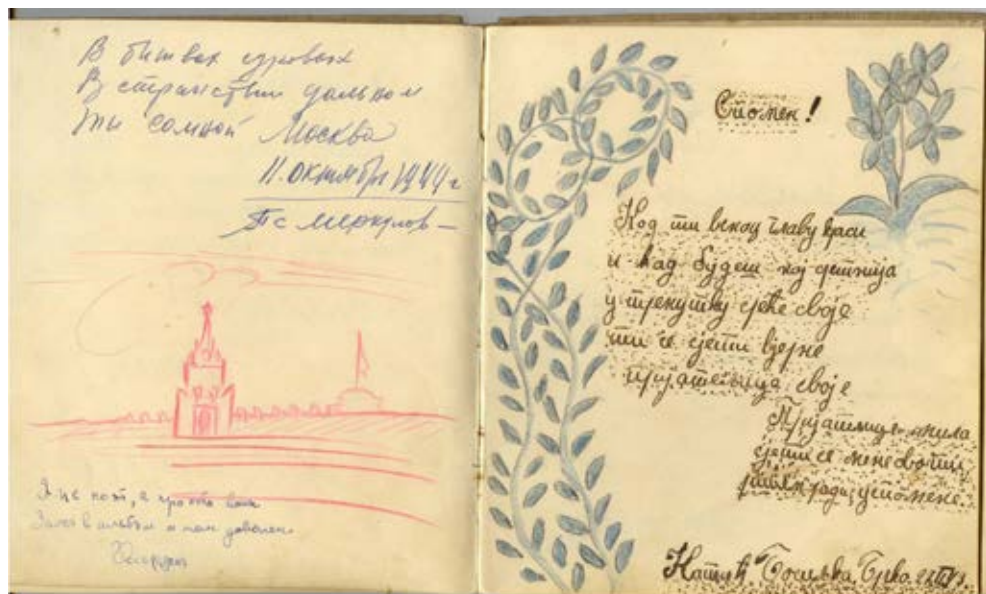 В битвах суровых
В странствии дальнем
Ты со мной Москва
11. октября 1944 г
Я не поэт, а просто воин
Залез в альбом и тем доволен.
Спомен!
Кад ти венац главу краси
и кад будеш кој детнија
у тренутку среће своје
ти се сјети вјерне
пријатељице своје
Пријатељице мила
сјети се мене
ради успомене.
Босиљка, Брчко